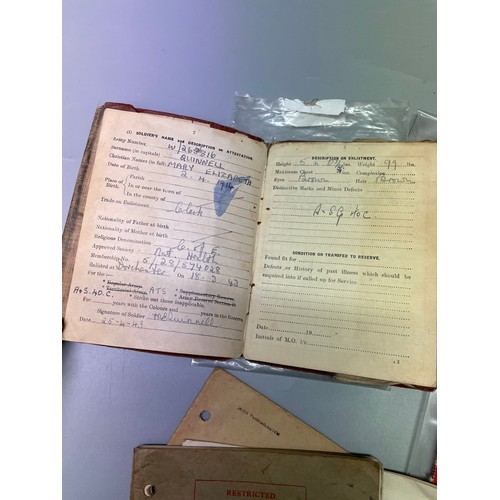 2
(1) SOLDIER'S NAME and DESCRIPTION on ATTESTATION.
Army Number W/269516
Surname (in capitals) QUINNELL
Christian Names (in full) MARY ELIZABETH
Date of Birth 2. 4. 1914
Place of Birth
Parish
In or near the town of
In the county of
Trade on Enlistment Clerk
Nationality of Father at birth
Nationality of Mother at birth
Religious Denomination C. of E.
Approved Society
Membership No. 5/28/574028
Enlisted at Dorchester on 18. 3 43
For the :—
* Regular Army. ATS * Supplementary Reserve.
* Territorial Army. * Army Reserve Section D.
A & S. 4D. C. * Strike out those inapplicable.
For years with the Colours and years in the Reserve.
Signature of Soldier MEQuinnell
Date 25-4-43
3
DESCRIPTION ON ENLISTMENT.
Height 5 ft. ins. Weight 99 lbs.
Maximum Chest ins. Complexion
Eyes Brown Hair Brown
Distinctive Marks and Minor Defects
CONDITION ON TRANSFER TO RESERVE.
Found fit for
Defects or History of past illness which should be
enquired into if called up for Service
Date 19
Initials of M.O. i/c
RESTRICTED